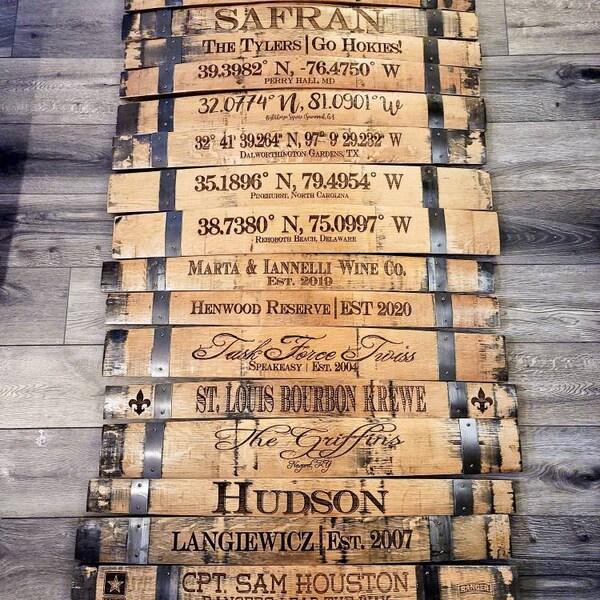 SAFRAN
THE TYLERS | GO HOKIES!
39.3982° N, -76.4750° W
PERRY HALL, MD
32.0774° N, 81.0901° W
32° 41' 39.264" N, 97° 9' 29.232" W
DALWORTHINGTON GARDENS, TX
35.1896° N, 79.4954° W
PINEHURST, NORTH CAROLINA
38.7380° N, 75.0997° W
REHOBOTH BEACH, DELAWARE
MARTA & IANNELLI WINE CO.
EST. 2019
HENWOOD RESERVE | EST 2020
Task Force Twiss
SPEAKEASY | EST. 2004
ST. LOUIS BOURBON KREWE
The Griffins
HUDSON
LANGIEWICZ | EST. 2007
CPT. SAM HOUSTON
RANGER